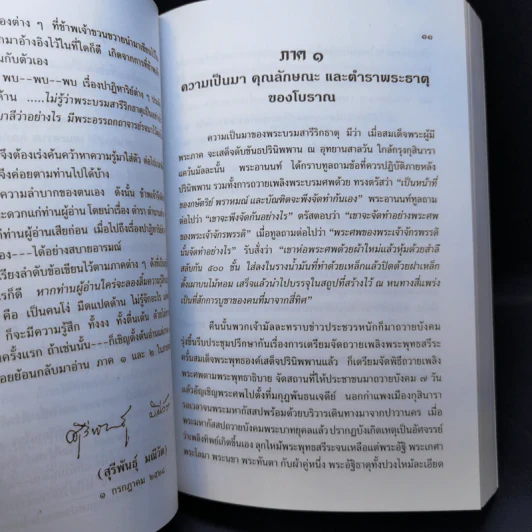 องต่าง ๆ ที่ข้าพเจ้าขวนขวายนำมาเขียนไว้ใน
มาอ้างอิงไว้ในที่ใดก็ดี เกิดจากการที่
กับตัวเอง
พบ--พบ--พบ เรื่องปาฏิหาริย์ต่าง ๆ
ด้าน .....ไม่รู้ว่าพระบรมสารีริกธาตุ
มาลีว่าอย่างไร มีพระอรรถกถาจารย์
จึงต้องเร่งค้นคว้าหาความรู้มาใส่ตัว
จึงค่อยตามท่านไปบ้าง
ความลำบากของตนเอง ดังนั้น
ะดวกแก่ท่านผู้อ่าน โดยนำเรื่อง ตำรา
ท่านผู้อ่านเสียก่อน เมื่อไปถึงเรื่องปาฏิหาริย์
---ได้อย่างสบายอารมณ์
เรียงลำดับข้อเขียนไว้ตามภาคต่าง ๆ
ไรก็ดี หากท่านผู้อ่านใคร่จะลอง
คือ เป็นคนโง่ มืดแปดด้าน ไม่รู้จักอะไร
ก็จะมีความรู้สึก ทั้งงง ทั้งตื่นเต้น
ครั้งแรก ถ้าเช่นนั้น---ก็เชิญตั้งต้นอ่าน
อยย้อนกลับมาอ่าน ภาค ๑ และ ๒
(สุรีพันธุ์ มณีวัต)
๑ กรกฎาคม ๒๕๓๘
๑๑
ภาค ๑
ความเป็นมา คุณลักษณะ และตำราพระธาตุ
ของโบราณ
ความเป็นมาของพระบรมสารีริกธาตุ มีว่า เมื่อสมเด็จพระผู้มี
พระภาค จะเสด็จดับขันธปรินิพพาน ณ อุทยานสาลวัน ใกล้กรุงกุสินารา
แคว้นมัลละนั้น พระอานนท์ ได้กราบทูลถามข้อที่ควรปฏิบัติภายหลัง
ปรินิพพาน รวมทั้งการถวายเพลิงพระบรมศพด้วย ทรงตรัสว่า “เป็นหน้าที่
ของกษัตริย์ พราหมณ์ และบัณฑิตจะพึงจัดทำกันเอง” พระอานนท์ทูลถาม
ต่อไปว่า “เขาจะพึงจัดกันอย่างไร” ตรัสตอบว่า “เขาจะจัดทำอย่างพระศพ
ของพระเจ้าจักรพรรดิ” เมื่อทูลถามต่อไปว่า “พระศพของพระเจ้าจักรพรรดิ
นั้นจัดทำอย่างไร” รับสั่งว่า “เขาห่อพระศพด้วยผ้าใหม่แล้วหุ้มด้วยสำลี
สลับกัน ๕๐๐ ชั้น ใส่ลงในรางน้ำมันที่ทำด้วยเหล็กแล้วปิดด้วยฝาเหล็ก
ตั้งเผาบนไม้หอม เสร็จแล้วนำไปบรรจุในสถูปที่สร้างไว้ ณ หนทางสี่แพร่ง
เป็นที่สักการบูชาของคนที่มาจากสี่ทิศ”
คืนนั้นพวกเจ้ามัลละทราบข่าวประชวรหนักก็มาถวายบังคม
รุ่งขึ้นรีบประชุมปรึกษากันเรื่องการเตรียมจัดถวายเพลิงพระพุทธสรีระ
ครั้นสมเด็จพระพุทธองค์เสด็จปรินิพพานแล้ว ก็เตรียมจัดพิธีถวายเพลิง
พระศพตามพระพุทธาธิบาย จัดสถานที่ให้ประชาชนมาถวายบังคม ๗ วัน
แล้วอัญเชิญพระศพไปตั้งที่มกุฏพันธนเจดีย์ นอกกำแพงเมืองกุสินารา
รอเวลาจนพระมหากัสสปพร้อมด้วยบริวารเดินทางมาจากปาวานคร เมื่อ
พระมหากัสสปถวายบังคมพระบาทยุคลแล้ว ปรากฏบังเกิดเหตุเป็นอัศจรรย์
ว่าเพลิงทิพย์เกิดขึ้นเอง ลุกไหม้พระพุทธสรีระจนเหลือแต่พระอัฐิ พระเกศา
พระโลมา พระนขา พระทันตา กับผ้าคู่หนึ่ง พระอัฐิธาตุทั้งปวงไหม้ละเอียด